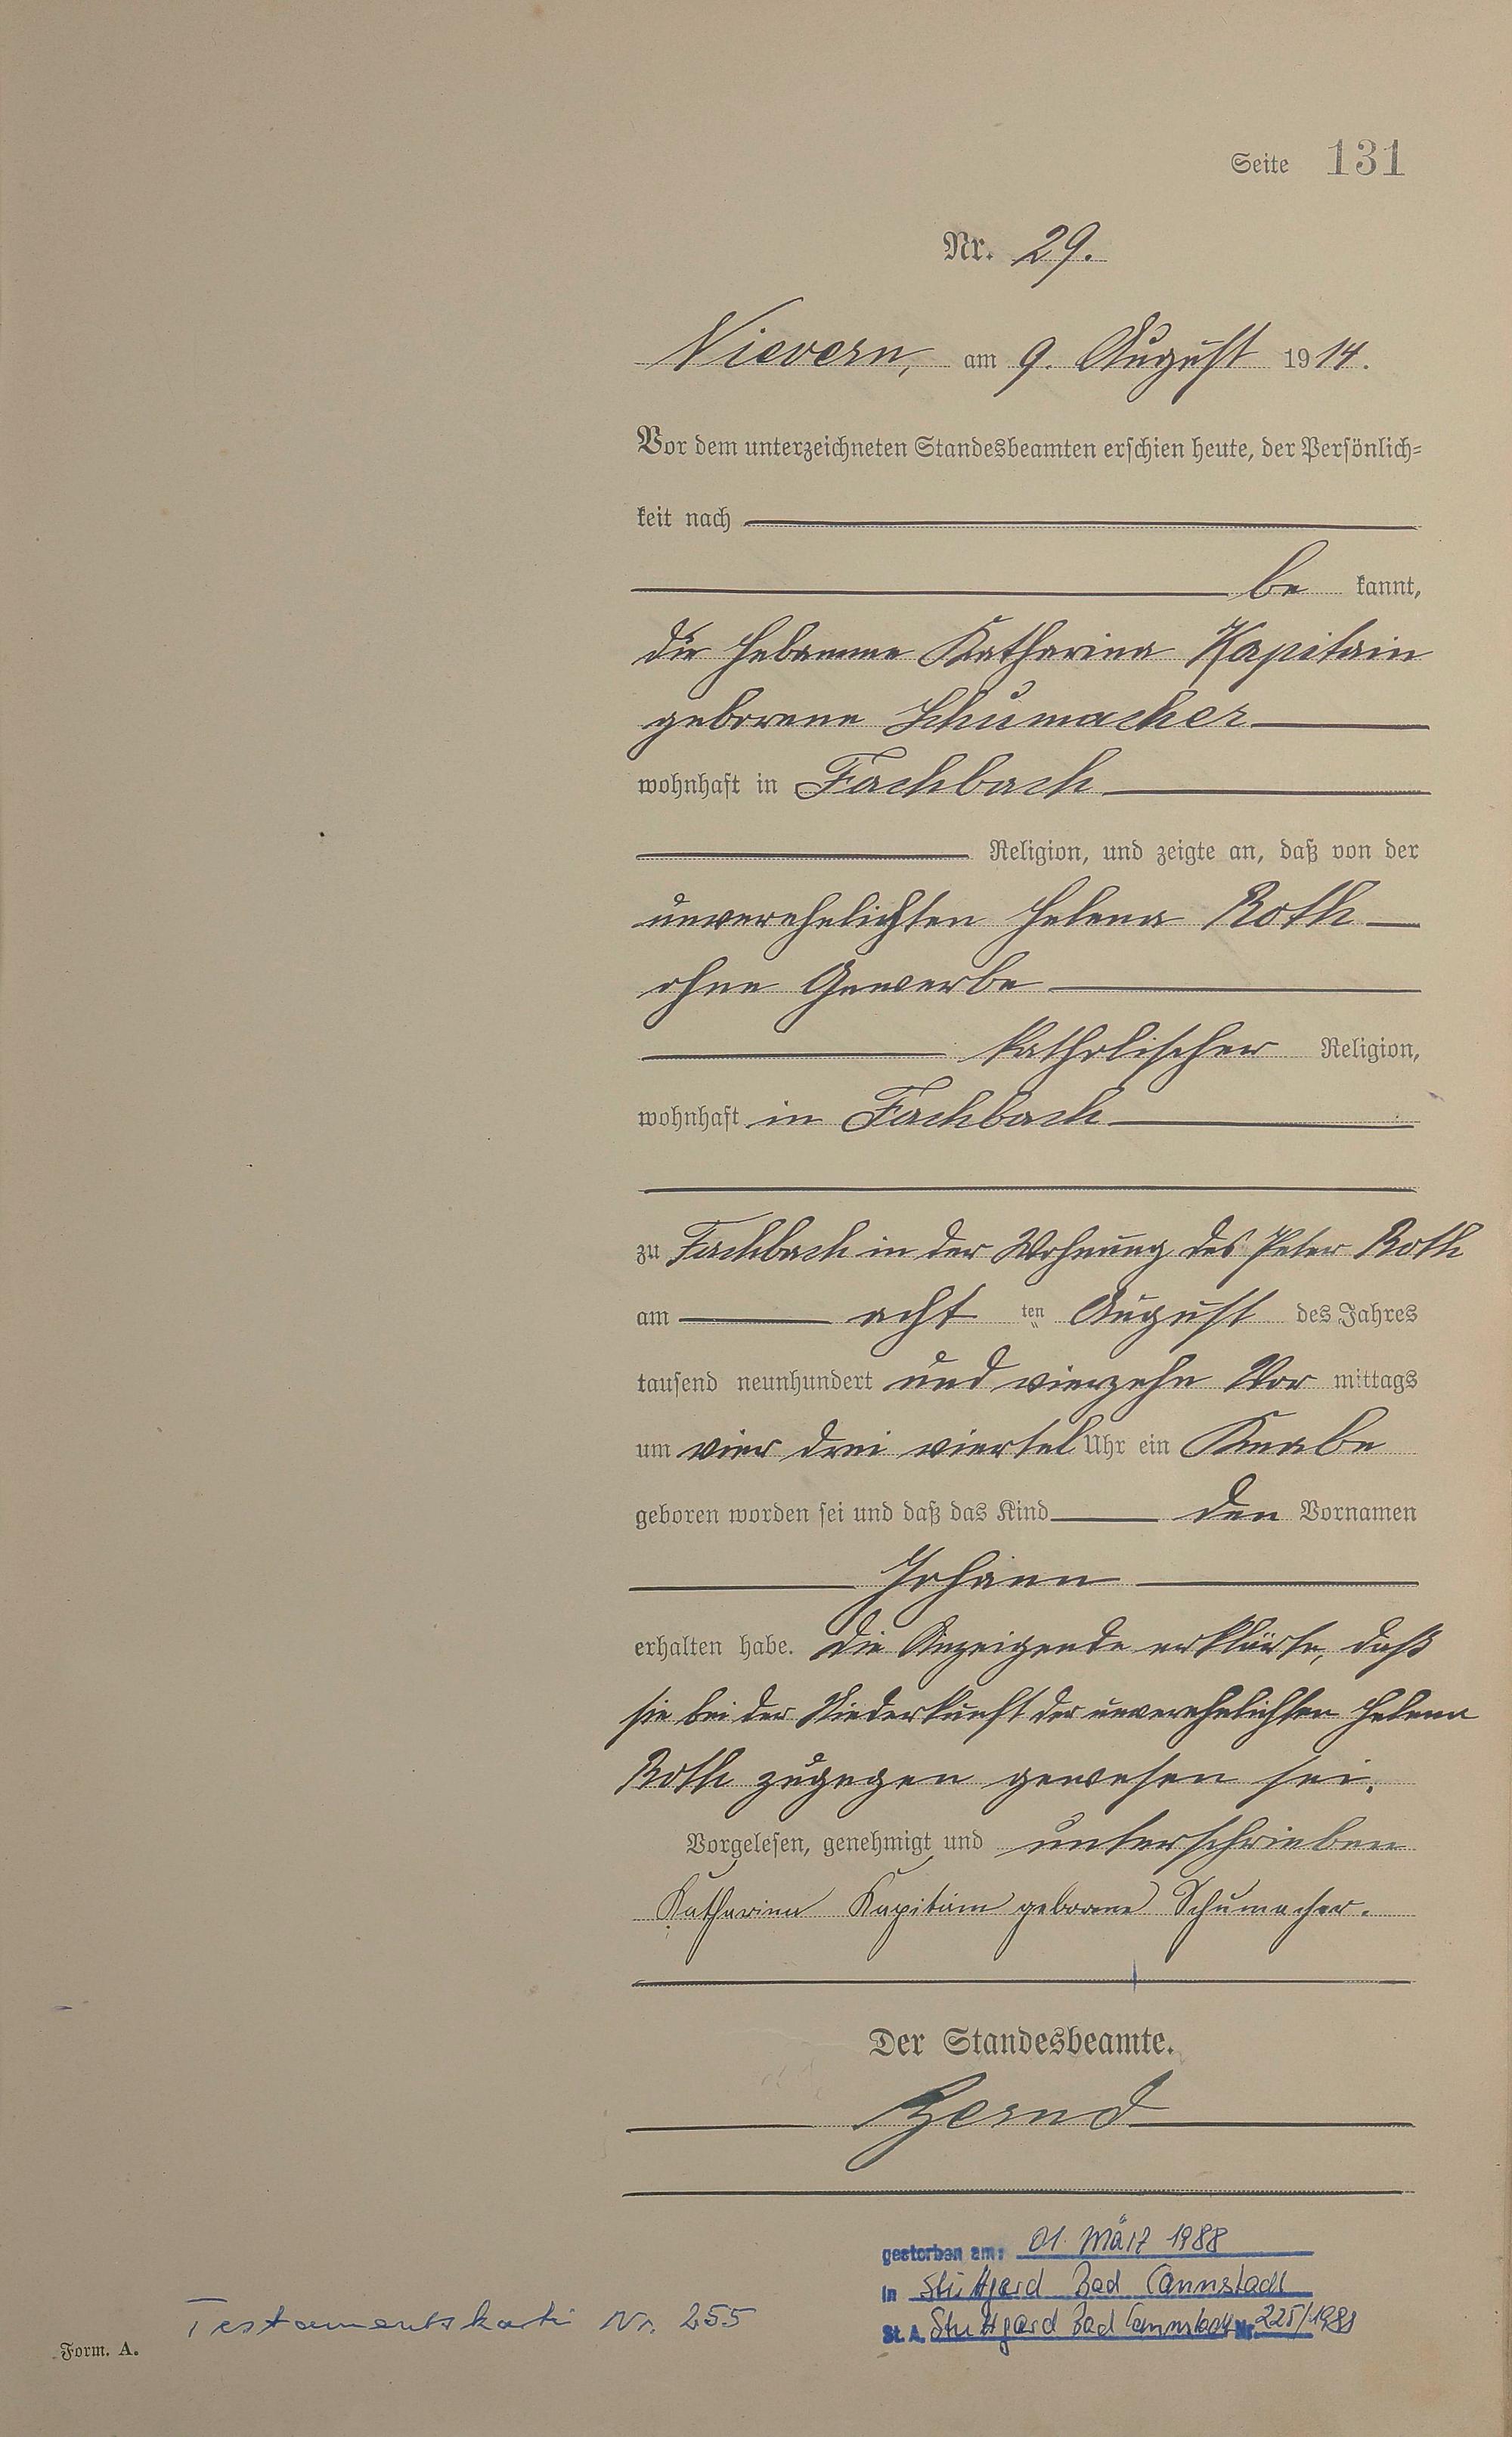 Seite 131
Nr. 29.
Nievern, am 9. August 1914.
Vor dem unterzeichneten Standesbeamten erschien heute, der Persönlich-
keit nach
be kannt,
die Hebamme Katharina Kapitain
geborene Schumacher
wohnhaft in Fachbach
Religion, und zeigte an, daß von der
unverehelichten Helena Roth
ohne Gewerbe
katholischer Religion,
wohnhaft in Fachbach
zu Fachbach in der Wohnung des Peter Roth
am acht ten August des Jahres
tausend neunhundert und vierzehn Vor mittags
um vier drei viertel Uhr ein Knabe
geboren worden sei und daß das Kind den Vornamen
Johann
erhalten habe. Die Anzeigende erklärte, daß
sie bei der Niederkunft der unverehelichten Helena
Roth zugegen gewesen sei.
Vorgelesen, genehmigt und unterschrieben
Katharina Kapitain geborene Schumacher.
Der Standesbeamte.
gestorben am: 01. März 1988
in Stuttgard Bad Cannstadt
St. A. Stuttgard Bad Cannstadt Nr. 225/1988
Testamentskartei Nr. 255
Form. A.